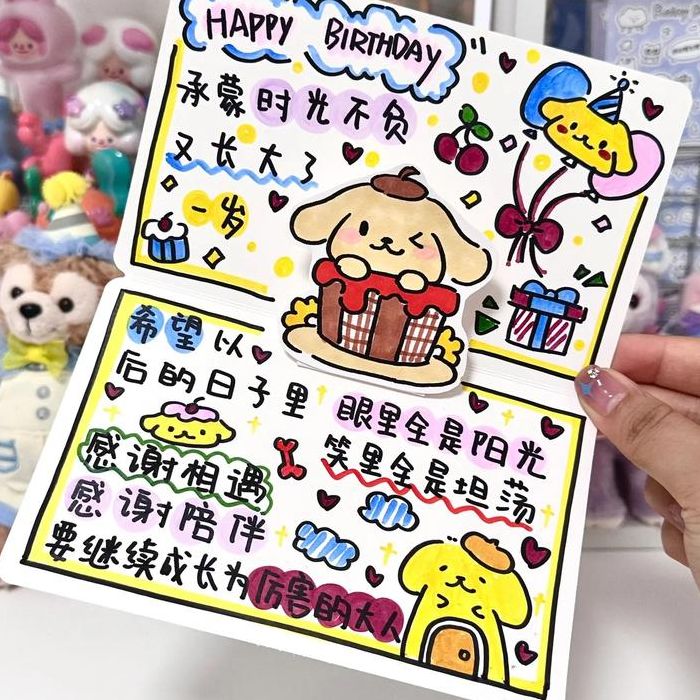 HAPPY BIRTHDAY
承蒙时光不负
又长大了
一岁
希望以
后的日子里
眼里全是阳光
笑里全是坦荡
感谢相遇
感谢陪伴
要继续成长为厉害的大人